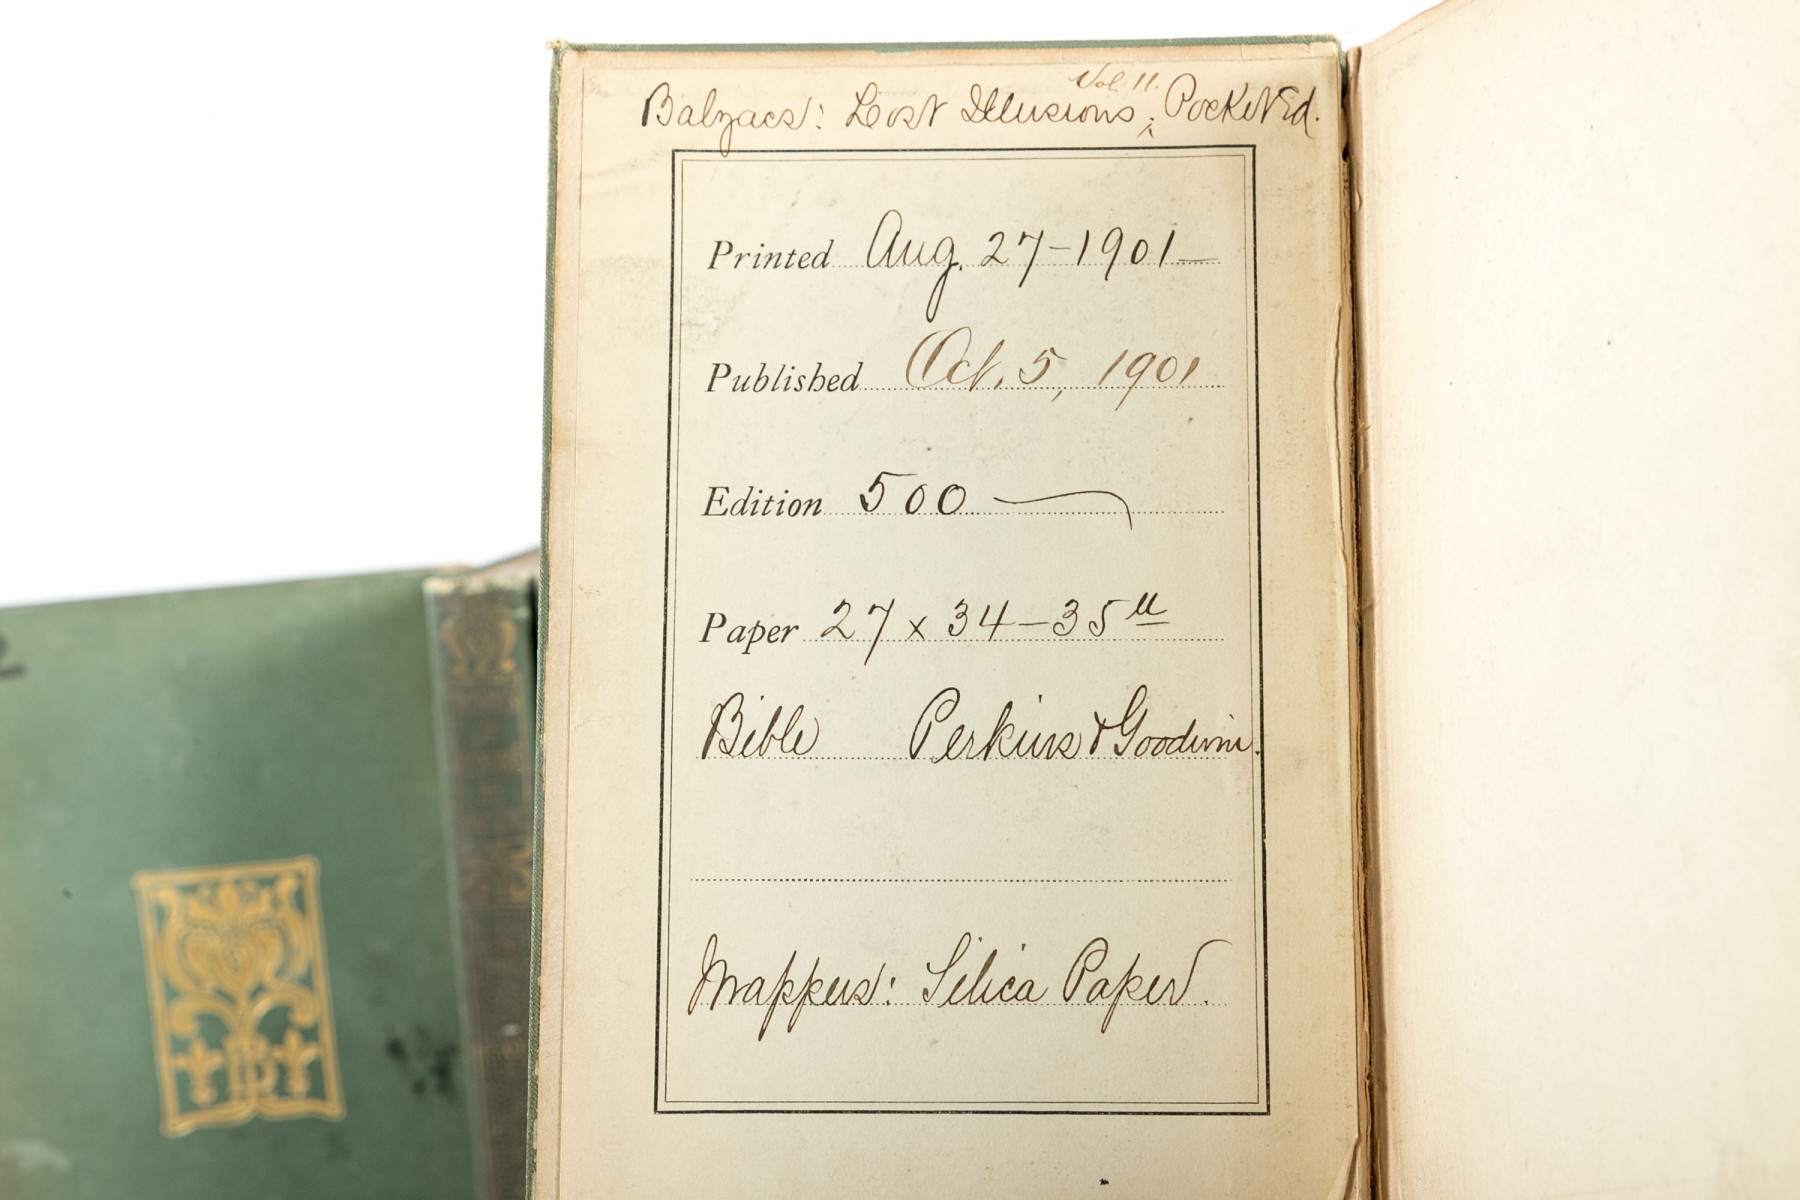 Balzacs: Lost Illusions, Vol. II. Pocket Ed.
Printed Aug. 27-1901-
Published Oct. 5, 1901
Edition 500
Paper 27 x 34-35 lb
Bible Perkins & Goodwin.
Wrappers: Silica Paper.